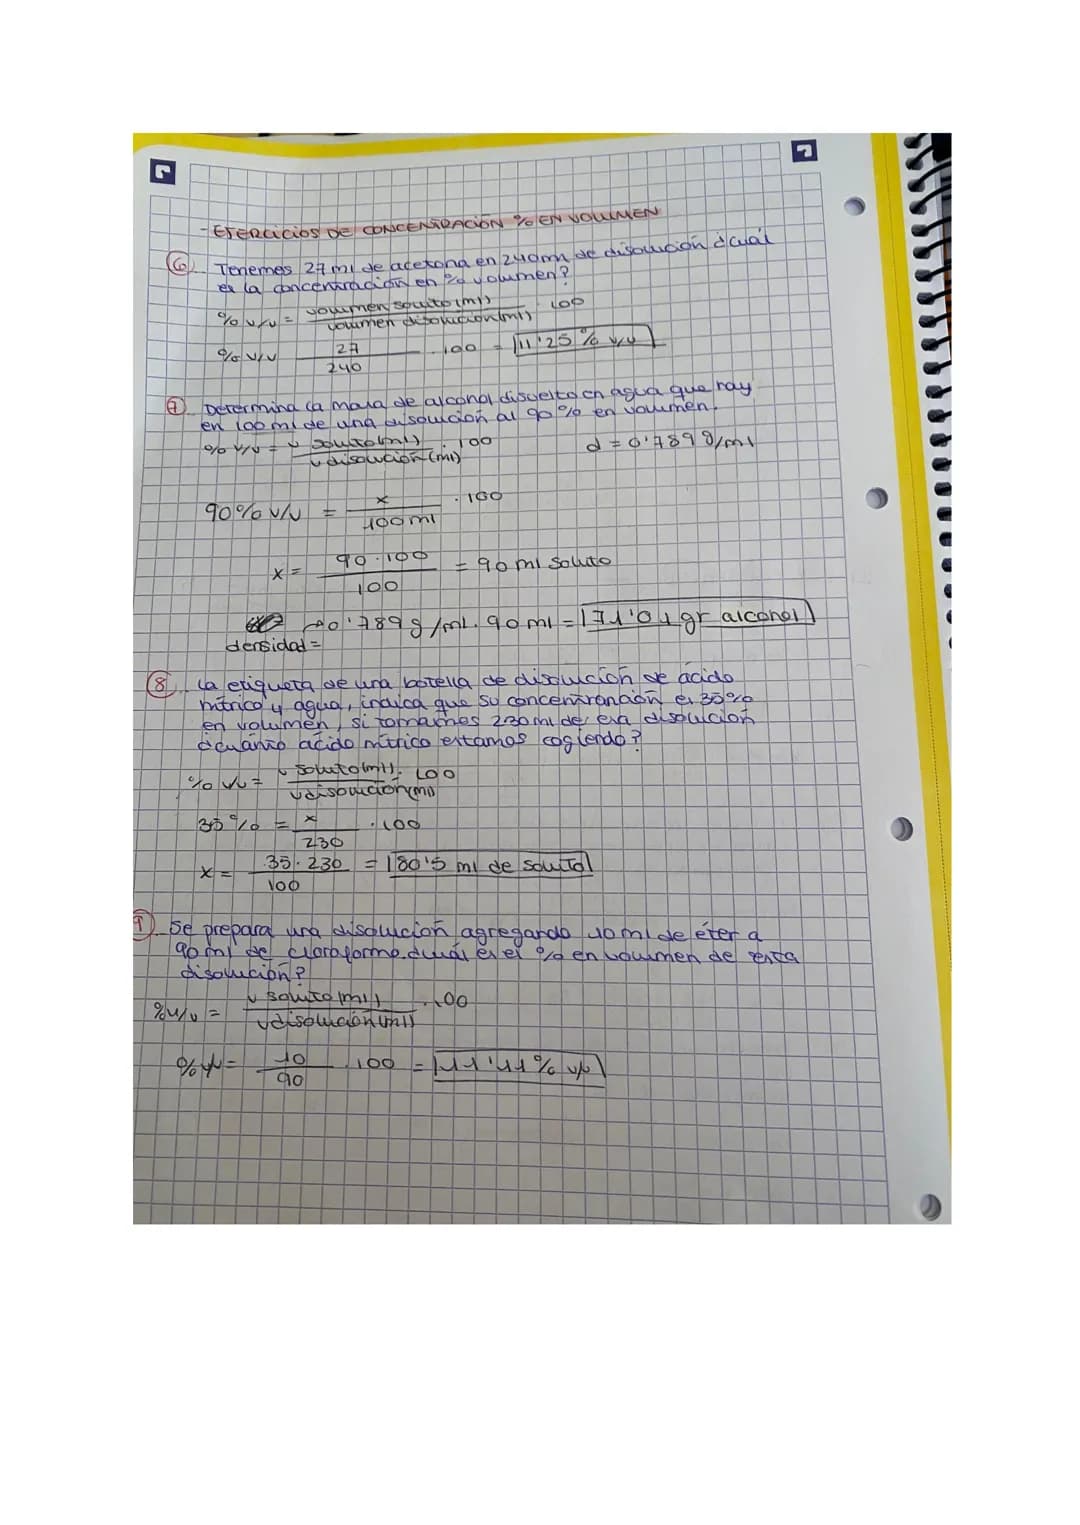 - EJERCICIOS DE CONCENTRACIÓN % EN VOLUMEN
6 Tenemos 27 ml de acetona en 240ml de disolución ¿cuál
es la concentración en % volumen?
% v/v = volumen soluto (ml) / volumen disolución (ml) · 100
% v/v 27 / 240 · 100 = 11'25 % v/v
7 Determina la masa de alcohol disuelto en agua que hay
en 100 ml de una disolución al 90% en volumen.
% v/v = v soluto (ml) / v disolución (ml) · 100 d = 0'789 g/ml
90% v/v = x / 100 ml · 100
x = 90·100 / 100 = 90 ml soluto
densidad = 0'789 g/ml · 90 ml = 71'01 gr alcohol
8 La etiqueta de una botella de disolución de ácido
nítrico y agua, indica que su concentranción es 35%
en volumen, si tomamos 230 ml de esa disolución
¿cuánto ácido nítrico estamos cogiendo?
% v/v = v soluto (ml) / v disolución (ml) · 100
35% = x / 230 · 100
x = 35·230 / 100 = 80'5 ml de soluto
9 Se prepara una disolución agregando 10 ml de éter a
90 ml de cloroformo. ¿cuál es el % en volumen de esta
disolución?
% v/v = v soluto (ml) / v disolución (ml) · 100
% v/v = 10 / 90 · 100 = 11'11% v/v